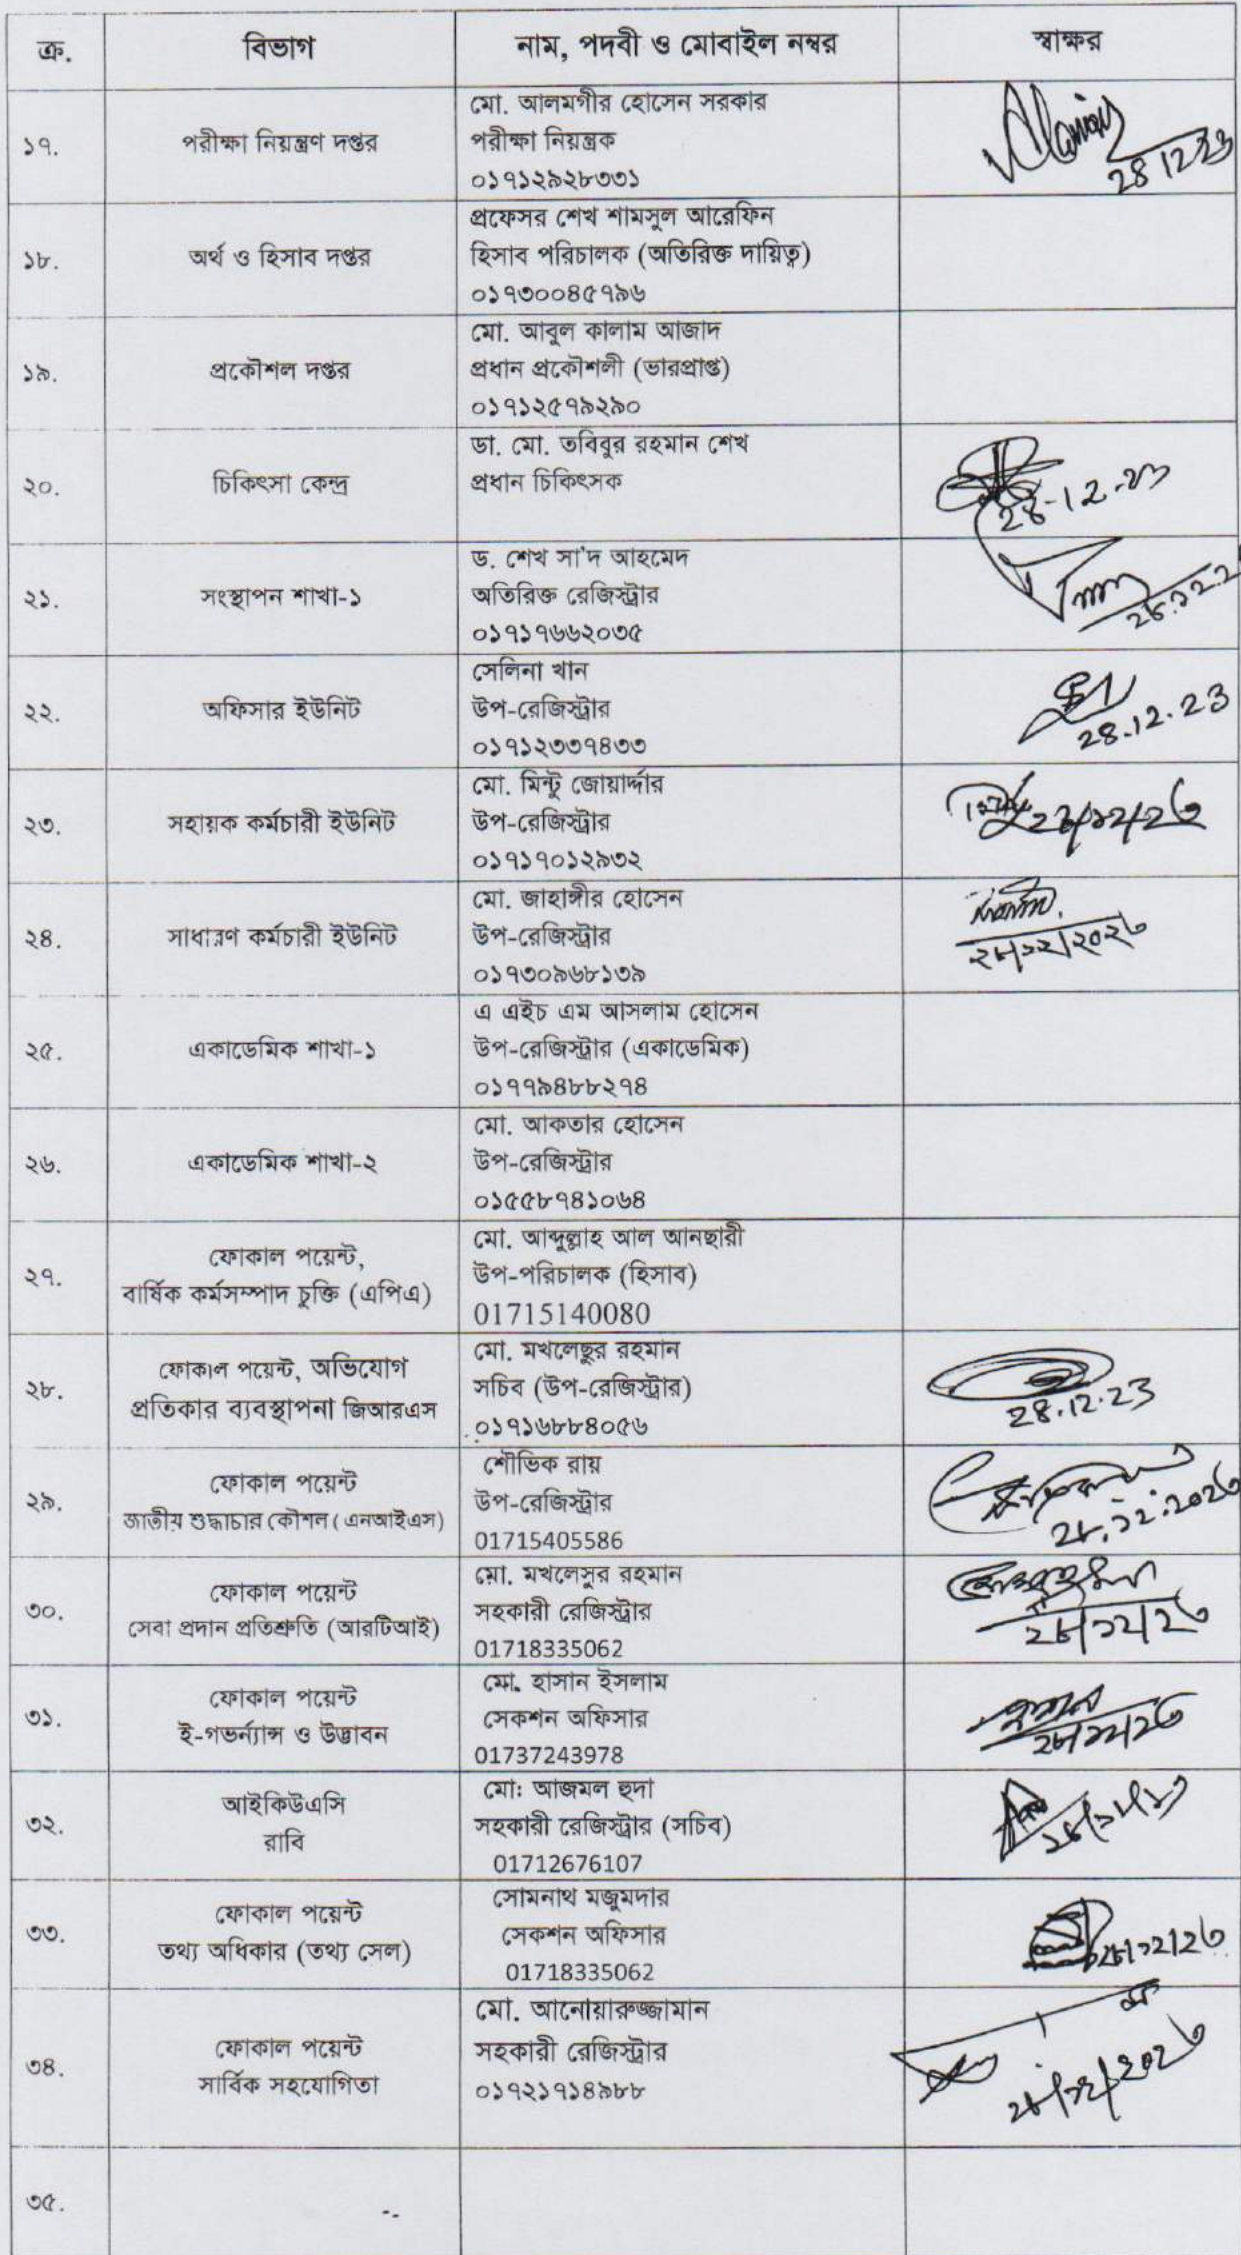 ক্র.
বিভাগ
নাম, পদবী ও মোবাইল নম্বর
স্বাক্ষর
১৭.
পরীক্ষা নিয়ন্ত্রণ দপ্তর
মো. আলমগীর হোসেন সরকার
পরীক্ষা নিয়ন্ত্রক
০১৭১২৯২৮৩৩১
28 12 23
১৮.
অর্থ ও হিসাব দপ্তর
প্রফেসর শেখ শামসুল আরেফিন
হিসাব পরিচালক (অতিরিক্ত দায়িত্ব)
০১৭৩০০৪৫৭৯৬
১৯.
প্রকৌশল দপ্তর
মো. আবুল কালাম আজাদ
প্রধান প্রকৌশলী (ভারপ্রাপ্ত)
০১৭১২৫৭৯২৯০
২০.
চিকিৎসা কেন্দ্র
ডা. মো. তবিবুর রহমান শেখ
প্রধান চিকিৎসক
28-12-23
২১.
সংস্থাপন শাখা-১
ড. শেখ সা'দ আহমেদ
অতিরিক্ত রেজিস্ট্রার
০১৭১৭৬৬২০৩৫
২২.
অফিসার ইউনিট
সেলিনা খান
উপ-রেজিস্ট্রার
০১৭১২৩৩৭৪৩৩
28.12.23
২৩.
সহায়ক কর্মচারী ইউনিট
মো. মিন্টু জোয়ার্দ্দার
উপ-রেজিস্ট্রার
০১৭১৭০১২৯৩২
২৪.
সাধারণ কর্মচারী ইউনিট
মো. জাহাঙ্গীর হোসেন
উপ-রেজিস্ট্রার
০১৭৩০৯৬৮১৩৯
২৮/১২/২০২৩
২৫.
একাডেমিক শাখা-১
এ এইচ এম আসলাম হোসেন
উপ-রেজিস্ট্রার (একাডেমিক)
০১৭৭৯৪৮৮২৭৪
২৬.
একাডেমিক শাখা-২
মো. আকতার হোসেন
উপ-রেজিস্ট্রার
০১৫৫৮৭৪১০৬৪
২৭.
ফোকাল পয়েন্ট,
বার্ষিক কর্মসম্পাদ চুক্তি (এপিএ)
মো. আব্দুল্লাহ আল আনছারী
উপ-পরিচালক (হিসাব)
01715140080
২৮.
ফোকাল পয়েন্ট, অভিযোগ
প্রতিকার ব্যবস্থাপনা জিআরএস
মো. মখলেছুর রহমান
সচিব (উপ-রেজিস্ট্রার)
০১৭১৬৮৮৪০৫৬
28.12.23
২৯.
ফোকাল পয়েন্ট
জাতীয় শুদ্ধাচার কৌশল (এনআইএস)
শৌভিক রায়
উপ-রেজিস্ট্রার
01715405586
২৮.১২.২০২৩
৩০.
ফোকাল পয়েন্ট
সেবা প্রদান প্রতিশ্রুতি (আরটিআই)
মো. মখলেসুর রহমান
সহকারী রেজিস্ট্রার
01718335062
২৮/১২/২৩
৩১.
ফোকাল পয়েন্ট
ই-গভর্ন্যান্স ও উদ্ভাবন
মো. হাসান ইসলাম
সেকশন অফিসার
01737243978
২৮/১২/২৩
৩২.
আইকিউএসি
রাবি
মো: আজমল হুদা
সহকারী রেজিস্ট্রার (সচিব)
01712676107
৩৩.
ফোকাল পয়েন্ট
তথ্য অধিকার (তথ্য সেল)
সোমনাথ মজুমদার
সেকশন অফিসার
01718335062
২৮/১২/২৩
৩৪.
ফোকাল পয়েন্ট
সার্বিক সহযোগিতা
মো. আনোয়ারুজ্জামান
সহকারী রেজিস্ট্রার
০১৭২১৭১৪৯৮৮
২৮/১২/২০২৩
৩৫.